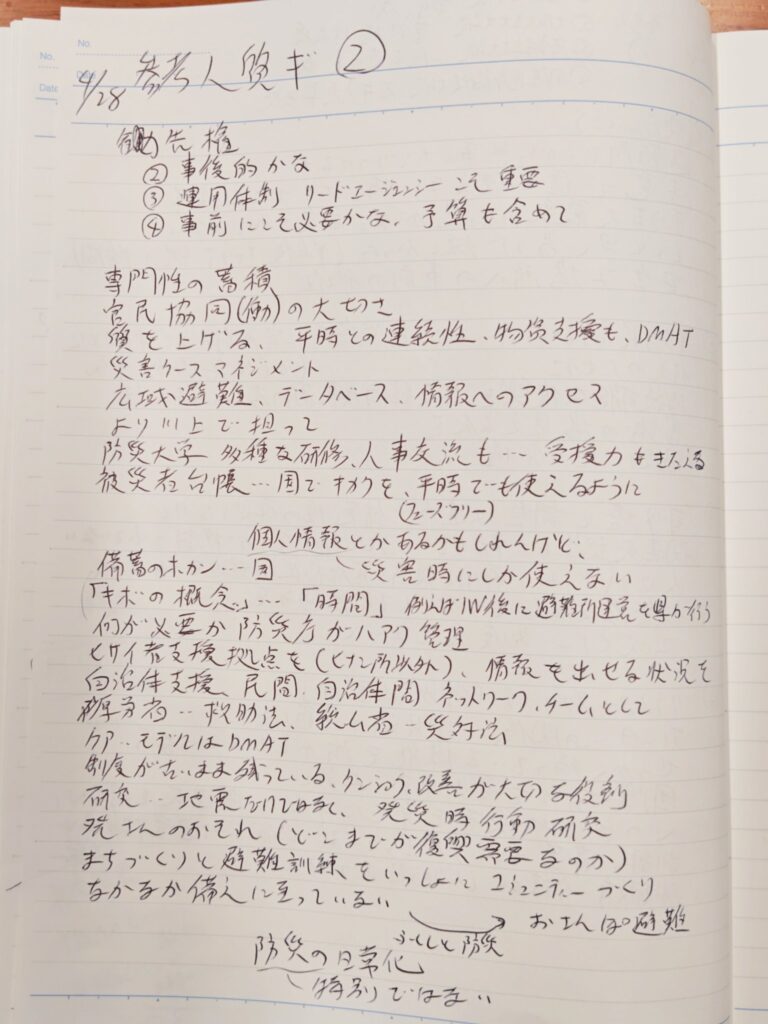 No.
Date
No.
Date
4/28 参考人質ギ ②
勧告権
② 事後的かな
③ 運用体制 リードエージェンシーこそ重要
④ 事前にこそ必要かな、予算も含めて
専門性の蓄積
官民協同(働)の大切さ
質を上げる、平時との連続性、物資支援も、DMAT
災害ケースマネジメント
広域避難、データベース、情報へのアクセス
より川上で担って
防災大学 多種な研修、人事交流も… 受援力もきたえる
被災者台帳…国でキカクを、平時でも使えるように
(フェーズフリー)
個人情報とかあるかもしれんけど、
災害時にしか使えない
備蓄のホカン…国
「キボの概念」…「時間」 例えば1W後に避難所運営を県が行う
何が必要か防災庁がハアク管理
ヒサイ者支援拠点を(ヒナン所以外)、情報を出せる状況を
自治体支援、民間、自治体間 ネットワーク、チームとして
厚労省…救助法、総ム省…災対法
ケア…モデルはDMAT
制度が古いまま残っている、ケンショウ、改善が大切な役割
研究…地震だけではなく、発災時行動研究
発さんのおそれ(どこまでが復興需要なのか)
まちづくりと避難訓練をいっしょに コミュニティーづくり
なかなか備えに至っていない
おさんぽ避難
ふくしと防災
防災の日常化
特別ではない